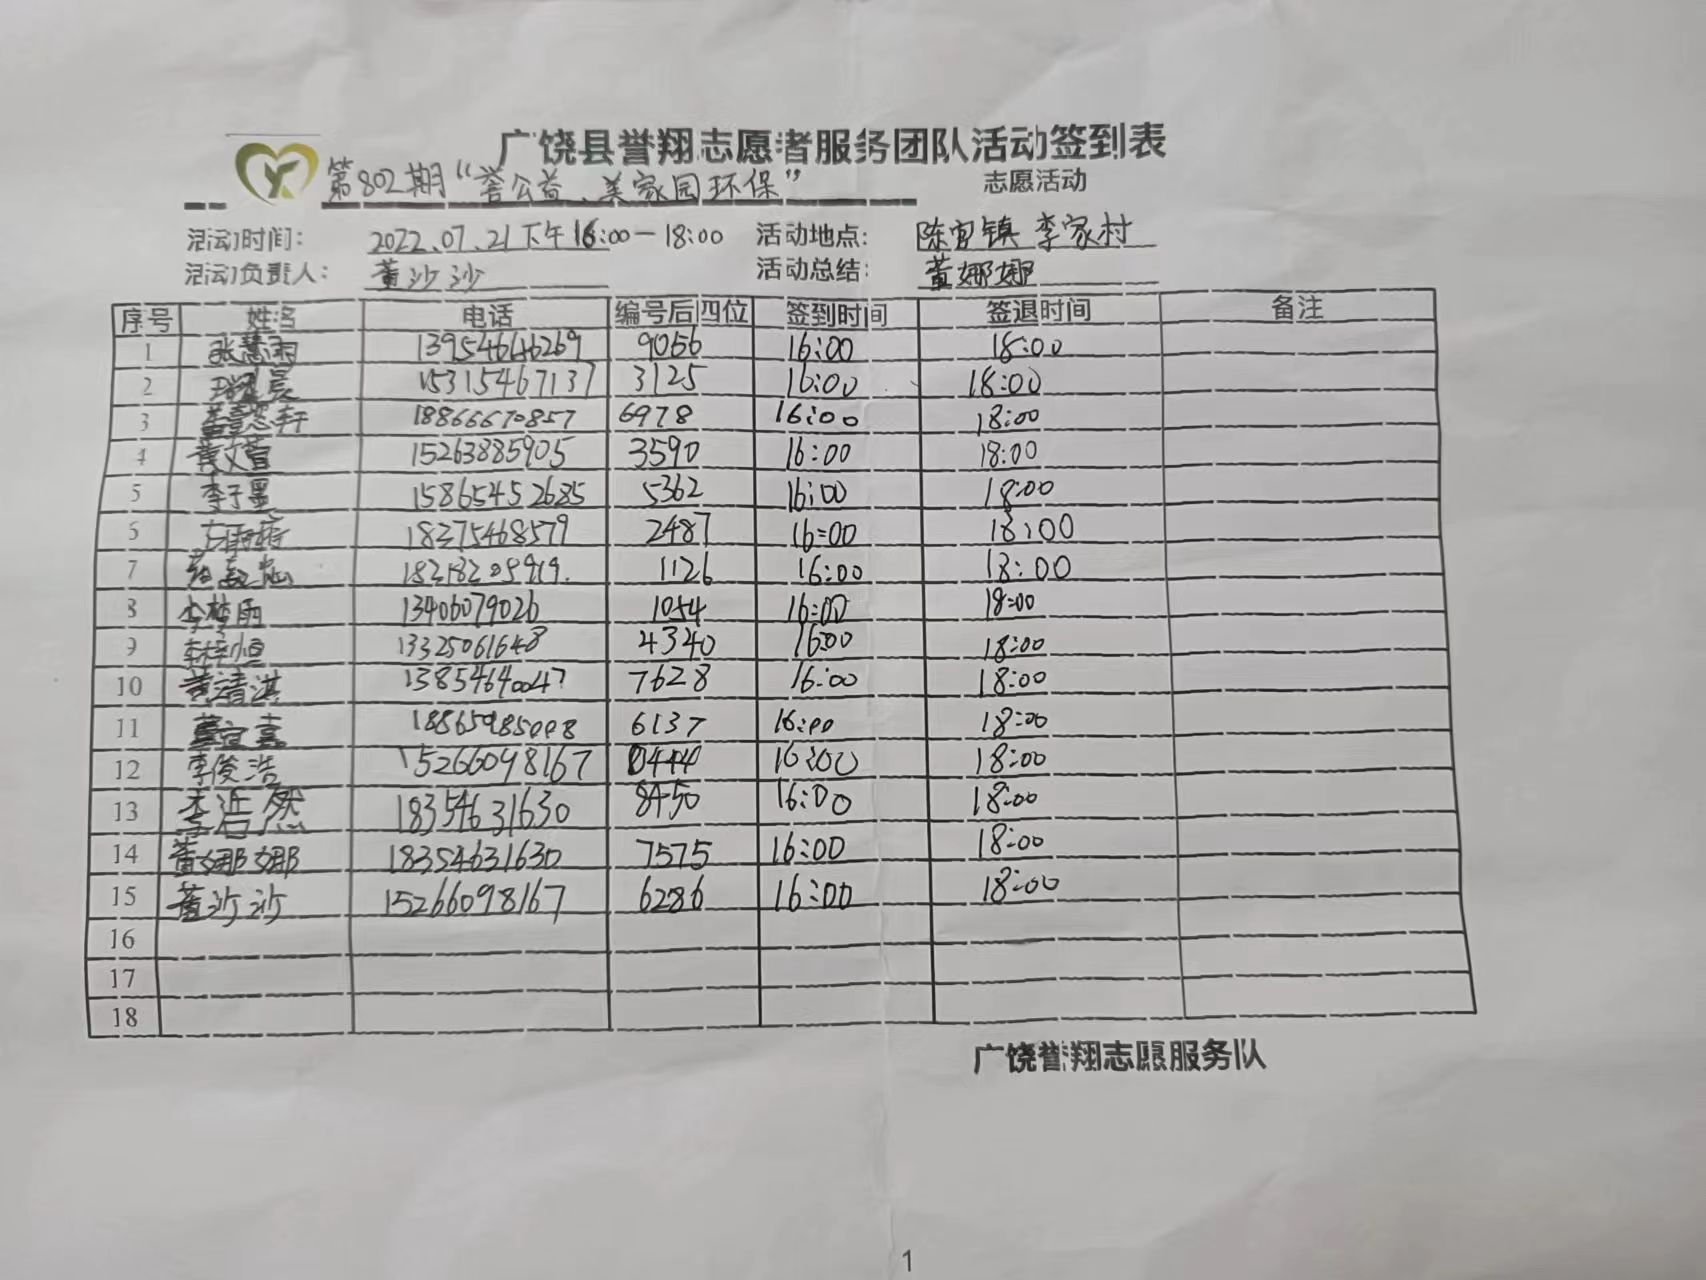 广饶县誉翔志愿者服务团队活动签到表
第802期“誉公益、美家园环保” 志愿活动
活动时间: 2022.07.21下午16:00-18:00 活动地点: 陈官镇 李家村
活动负责人: 董沙沙 活动总结: 董娜娜
序号 姓名 电话 编号后四位 签到时间 签退时间 备注
1 张慧羽 13954646269 9056 16:00 18:00
2 15315467137 3125 16:00 18:00
3 18866670857 6978 16:00 18:00
4 黄文萱 15263885905 3590 16:00 18:00
5 李子墨 15865452685 5362 16:00 18:00
6 18275468579 2487 16:00 18:00
7 1126 16:00 18:00
8 李梦雨 13406079026 1054 16:00 18:00
9 李梓恒 13325061648 4340 16:00 18:00
10 黄清淇 13854640047 7628 16:00 18:00
11 董宜嘉 18865985008 6137 16:00 18:00
12 李俊浩 15266098167 0444 16:00 18:00
13 18354631630 8450 16:00 18:00
14 董娜娜 18354631630 7575 16:00 18:00
15 董沙沙 15266098167 6286 16:00 18:00
16
17
18
广饶誉翔志愿服务队
1